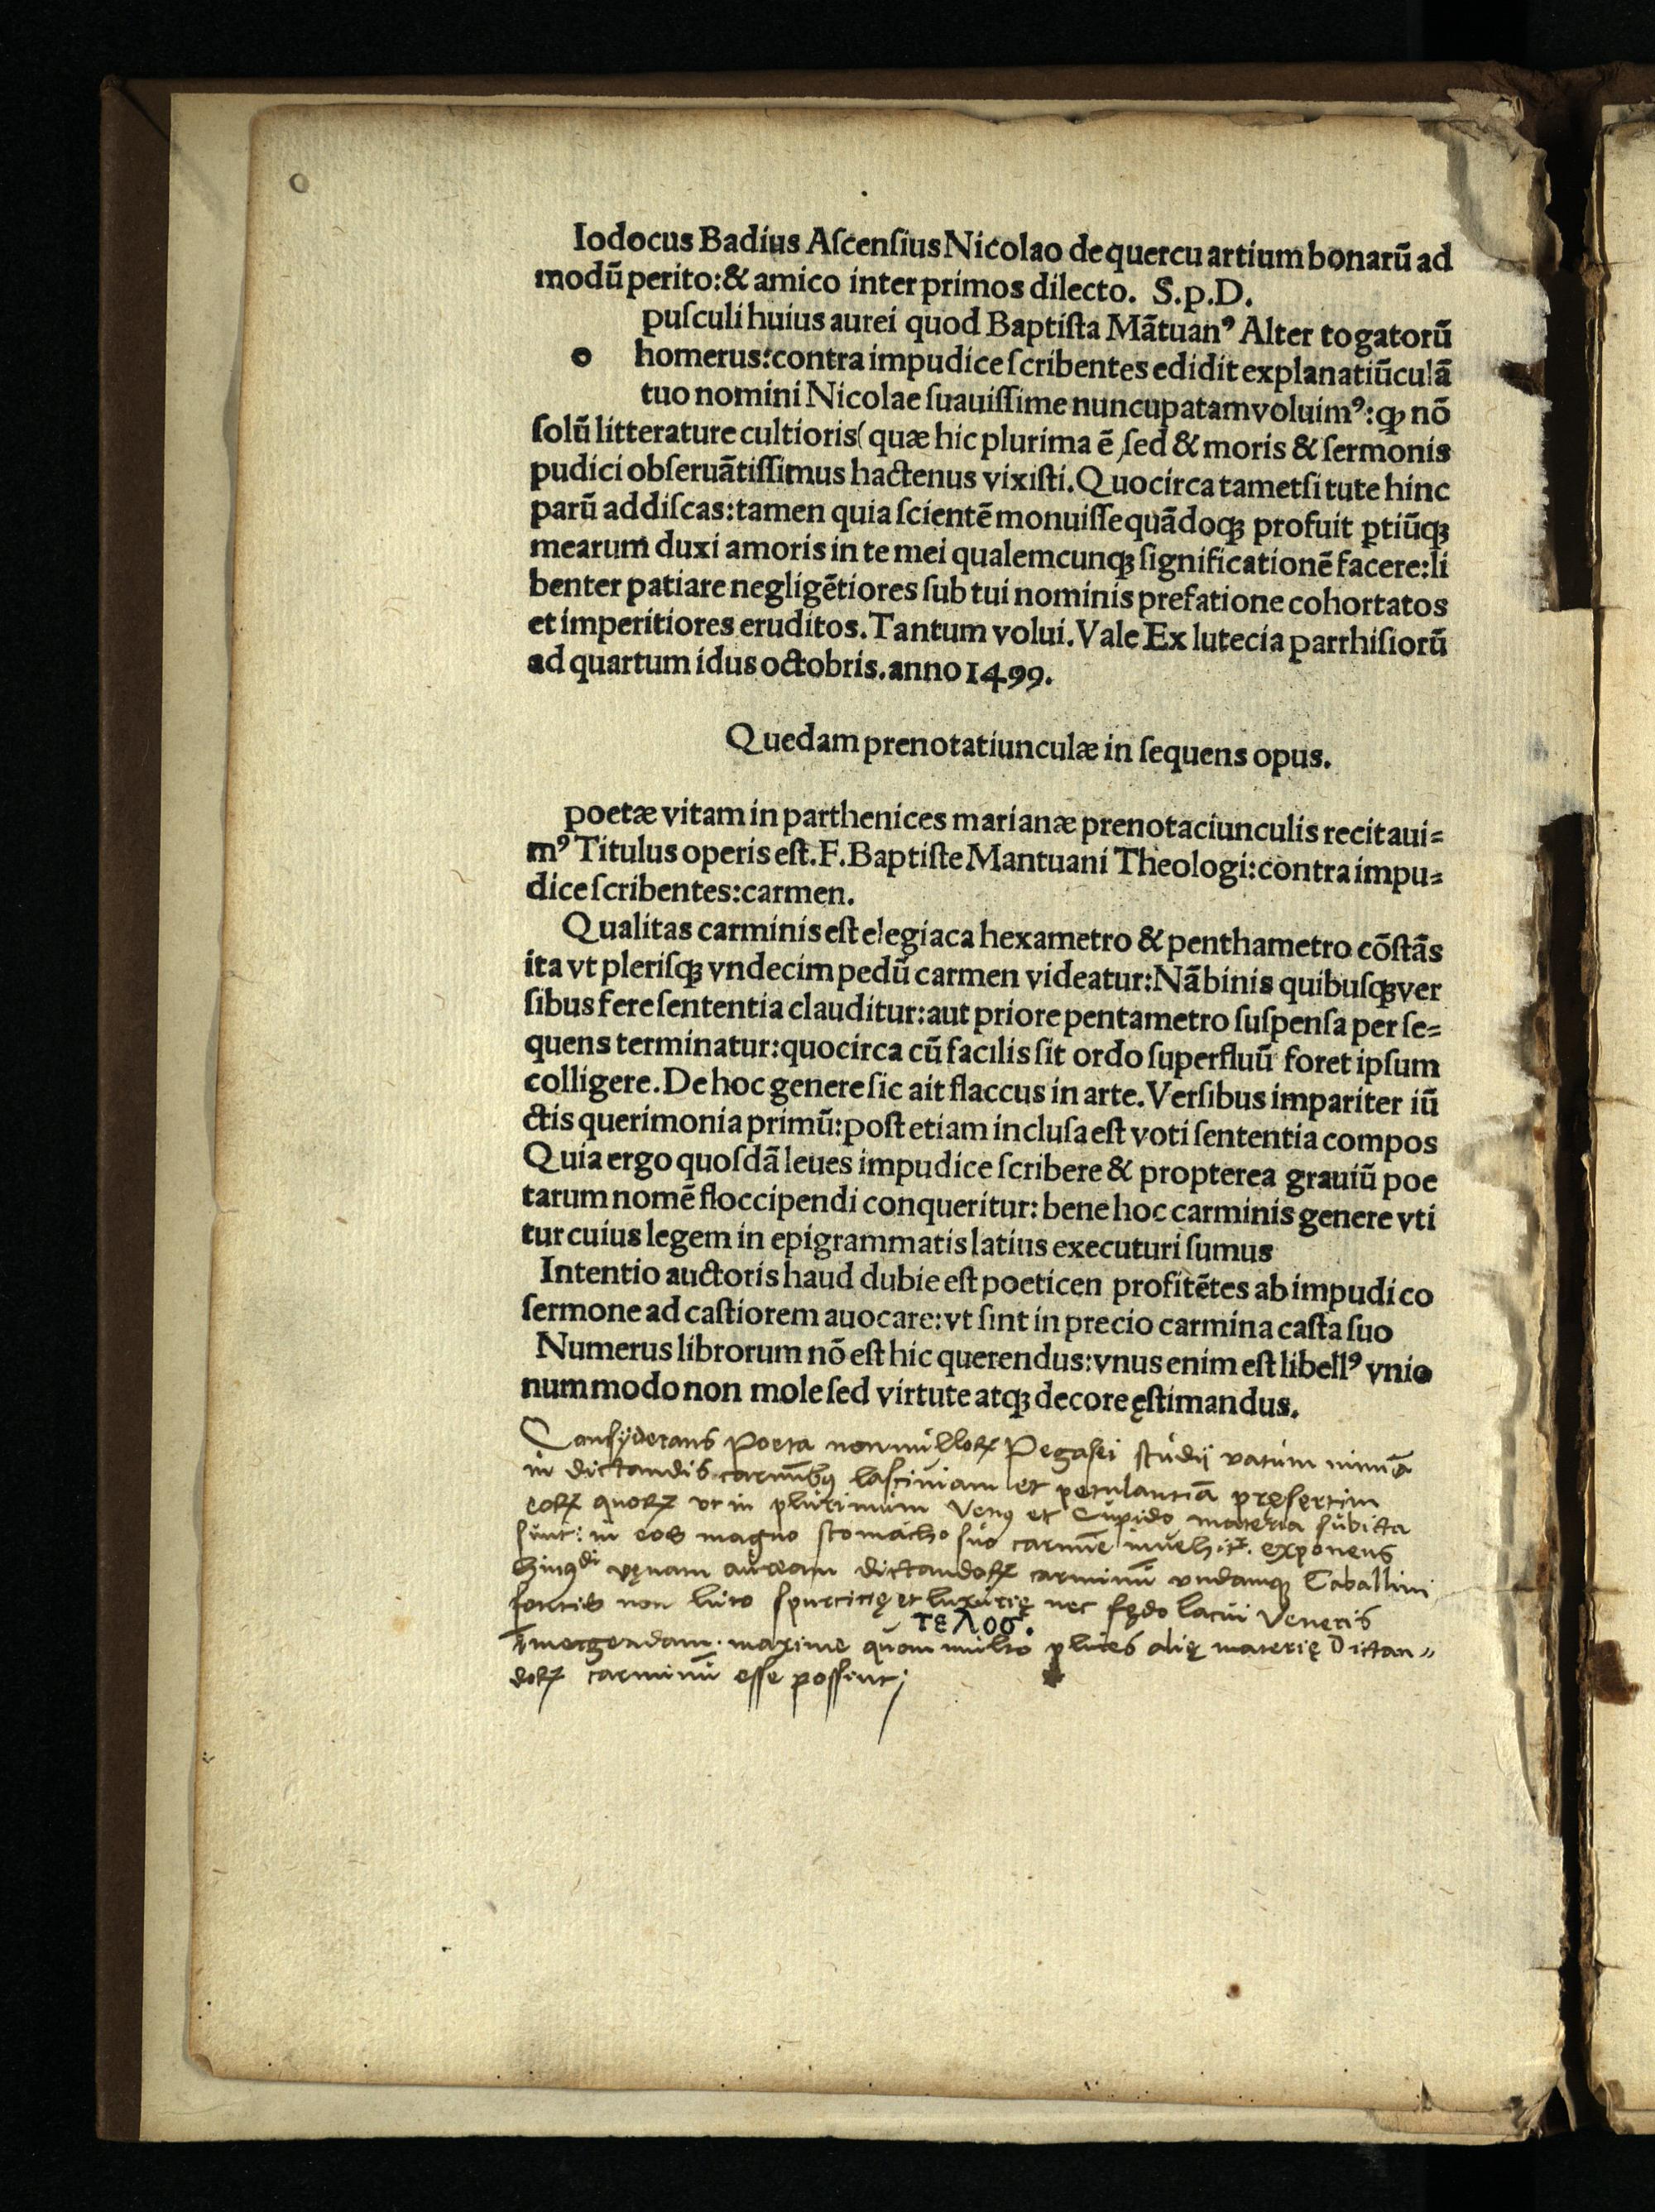 Iodocus Badius Aſcenſius Nicolao de quercu artium bonarū ad
modū perito:& amico inter primos dilecto. S.p.D.
puſculi huius aurei quod Baptiſta Mātuanꝰ Alter togatorū
o homerus:contra impudice ſcribentes edidit explanatiūculā
tuo nomini Nicolae ſuauiſſime nuncupatam voluimꝰ:ꝙ nō
ſolū litterature cultioris( quæ hic plurima ē ,ſed & moris & ſermonis
pudici obſeruātiſſimus hactenus vixiſti.Quocirca tametſi tute hinc
parū addiſcas:tamen quia ſcientē monuiſſe quādoqꝫ profuit ꝑtiūqꝫ
mearum duxi amoris in te mei qualemcunqꝫ ſignificationē facere:li
benter patiare negligētiores ſub tui nominis prefatione cohortatos
et imperitiores eruditos.Tantum volui.Vale Ex lutecia parrhiſiorū
ad quartum idus octobris.anno 1499.
Quedam prenotatiunculæ in ſequens opus.
poetæ vitam in parthenices marianæ prenotaciunculis recitaui=
mꝰ Titulus operis eſt.F.Baptiſte Mantuani Theologi:contra impu=
dice ſcribentes:carmen.
Qualitas carminis eſt elegiaca hexametro & penthametro cōſtās
ita vt pleriſqꝫ vndecim pedū carmen videatur:Nā binis quibuſqꝫ ver
ſibus fere ſententia clauditur:aut priore pentametro ſuſpenſa per ſe=
quens terminatur:quocirca cū facilis ſit ordo ſuperfluū foret ipſum
colligere.De hoc genere ſic ait flaccus in arte.Verſibus impariter iū
ctis querimonia primū:poſt etiam incluſa eſt voti ſententia compos
Quia ergo quoſdā leues impudice ſcribere & propterea grauiū poe
tarum nomē floccipendi conqueritur: bene hoc carminis genere vti
tur cuius legem in epigrammatis latius executuri ſumus
Intentio auctoris haud dubie eſt poeticen profitētes ab impudico
ſermone ad caſtiorem auocare:vt ſint in precio carmina caſta ſuo
Numerus librorum nō eſt hic querendus:vnus enim eſt libellꝰ vnio
num modo non mole ſed virtute atqꝫ decore ęſtimandus.
Conſyderans Poeta nonnulloꝝ Pegaſei ſtudij vatum nimiā
in dictandis carmībꝰ laſciuiam et petulantiā pręſertim
eoꝝ quoꝝ vt in plurimum Venꝰ et Cupido materia ſubiecta
ſunt: in eos magno ſtomacho ſuo carmīe inuehit. exponens
huiꝰdi vęnam auream dictandoꝝ carminū vndamqꝫ Caballini
fontis non luto ſpurcicię et luxurię nec fędo lacui Veneris
τελοσ.
īmergendam. maxime quom multo plures alię materię Dictan=
doꝝ carminū eſſe poſſint;